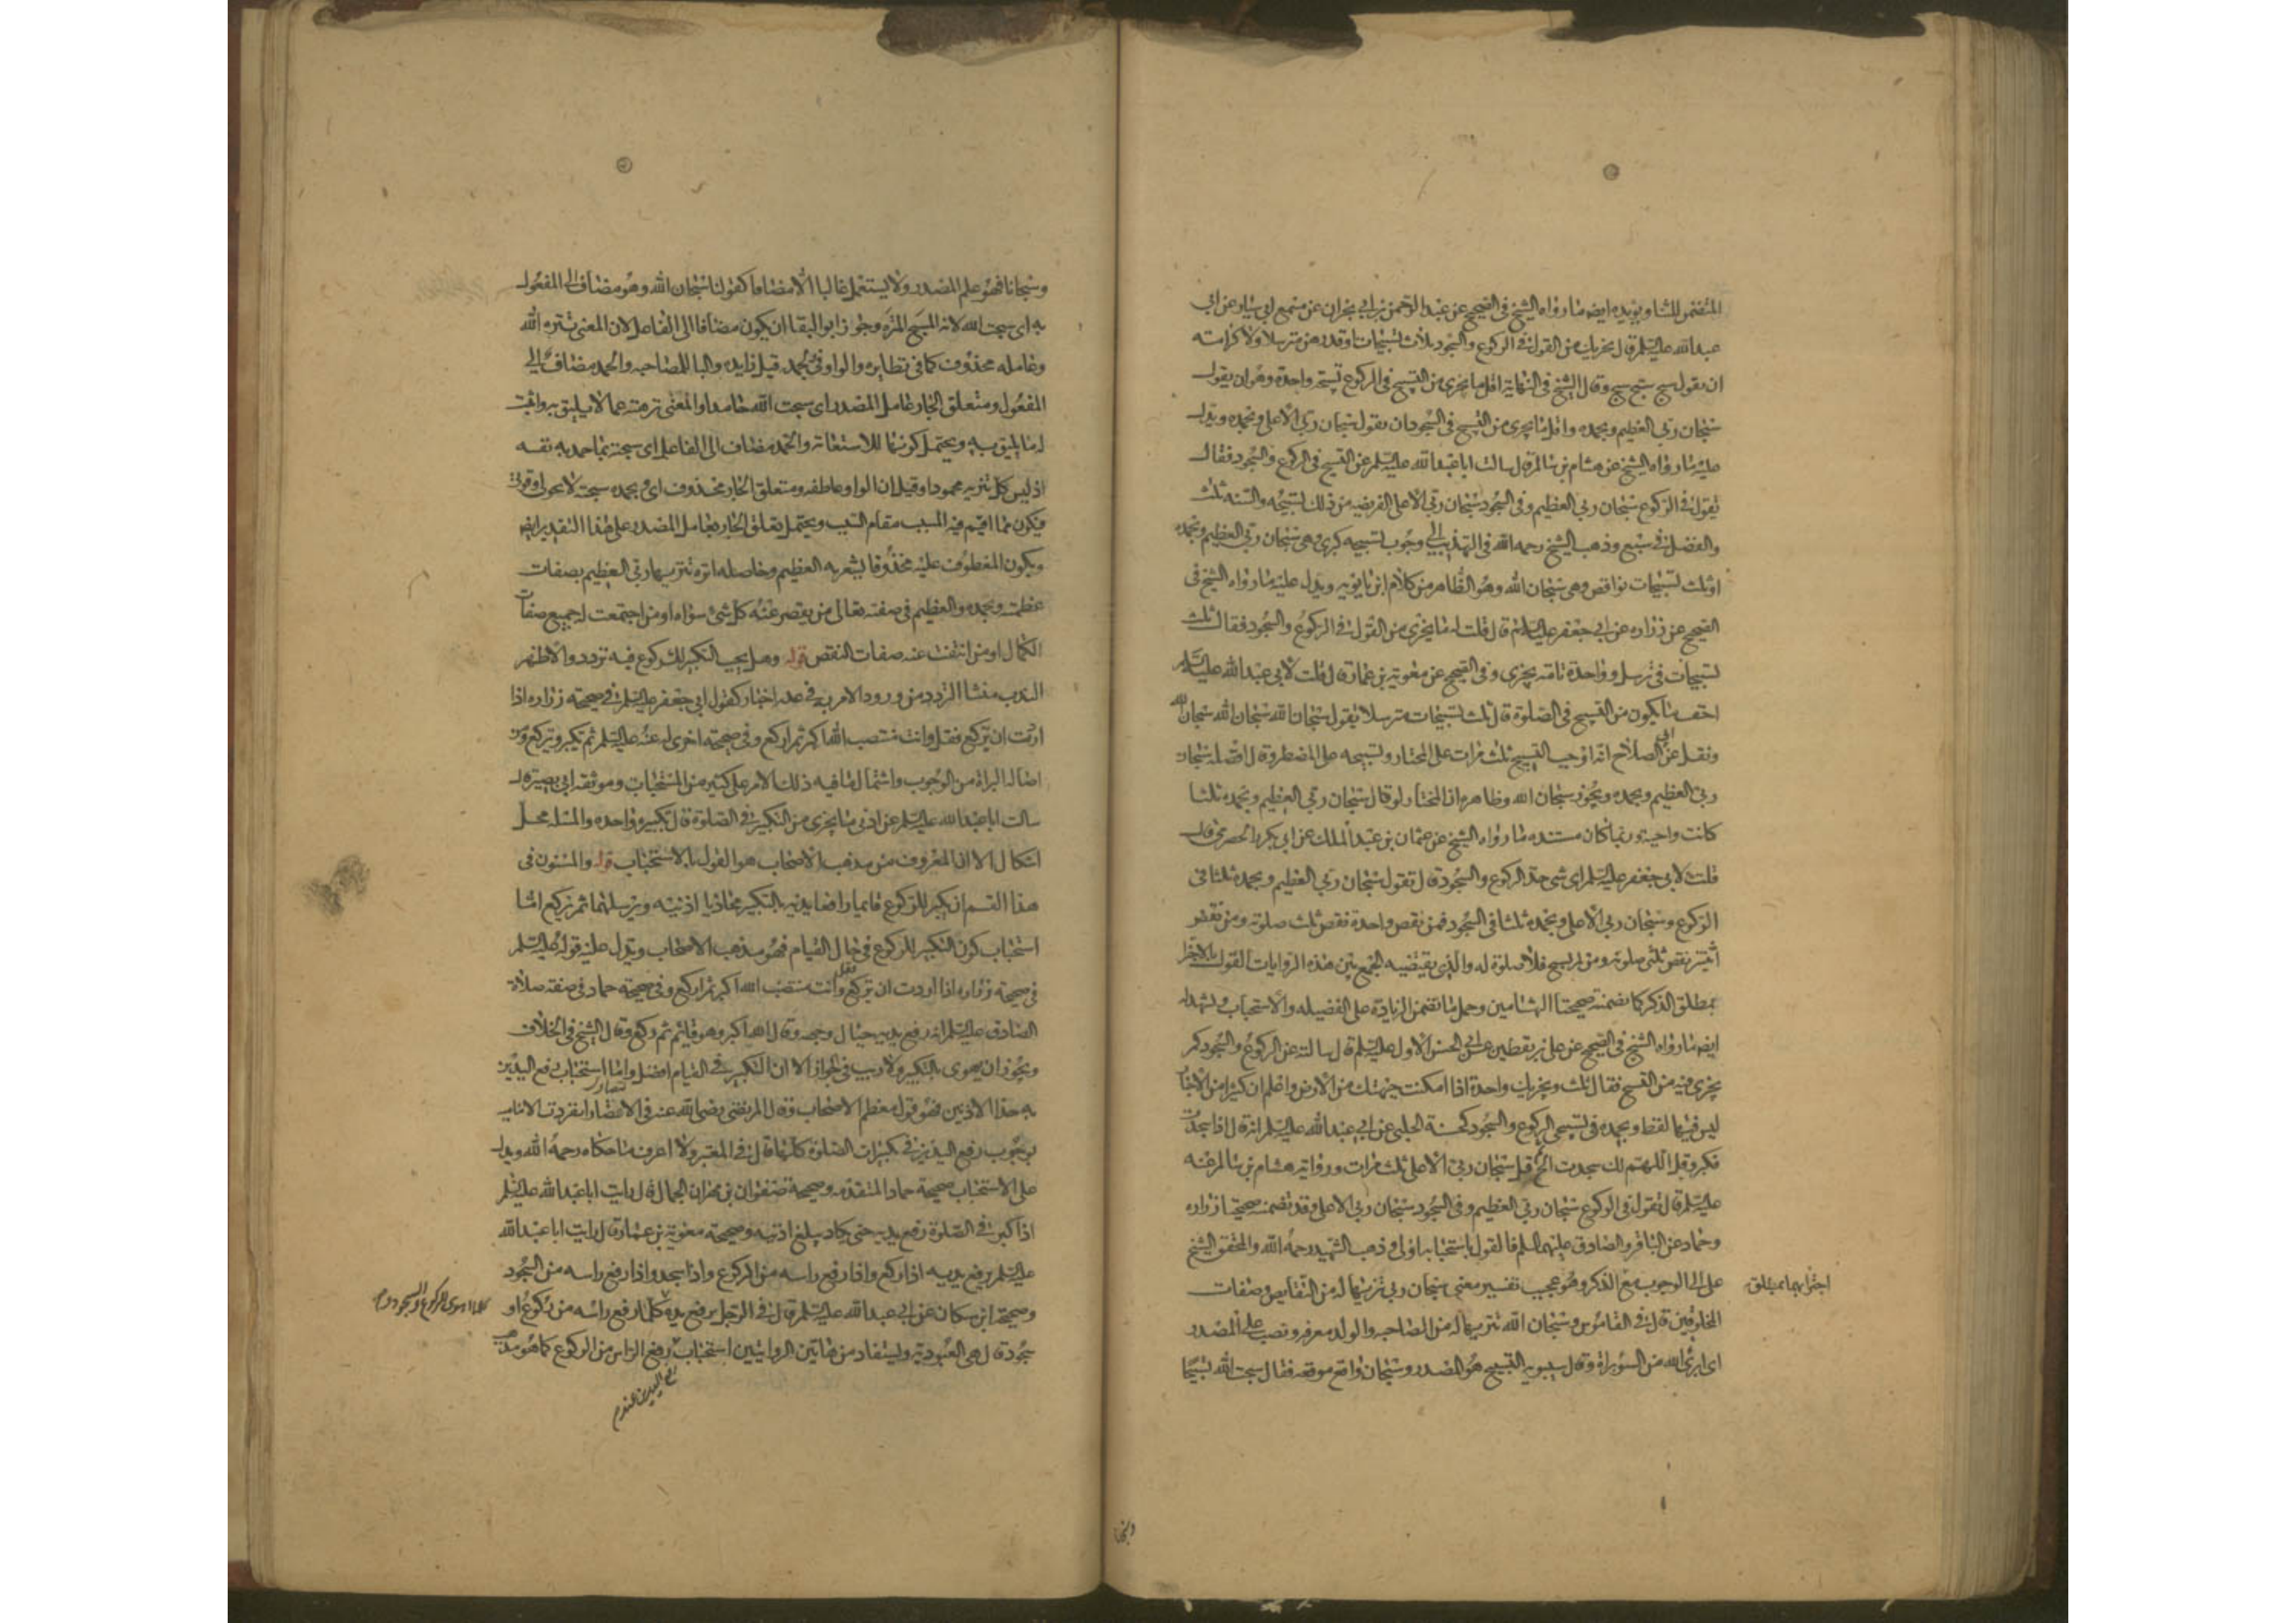 المتضمن للشا ويؤيده ايضا ما رواه الشيخ في الصحيح عن عبد الرحمن بن ابي نجران عن مسمع ابي سيار عن ابي
عبدالله عليه السلم قال يجزيك من القول في الركوع والسجود ثلاث تسبيحات او قدرهن مترسلا ولا كرامته
ان يقول سبح سبح سبح وقال الشيخ في النهاية اقل ما يجزى من التسبيح في الركوع تسبيحة واحدة وهو ان يقول
سبحان ربي العظيم وبحمده واقل ما يجزى من التسبيح في السجود ان يقول سبحان ربي الاعلى وبحمده ويدل
عليه ما رواه الشيخ عن هشام بن سالم قال سالت ابا عبدالله عليه السلم عن التسبيح في الركوع والسجود فقال
تقول في الركوع سبحان ربي العظيم وفي السجود سبحان ربي الاعلى الفريضه من ذلك تسبيحه والسنه ثلث
والفضل في سبع وذهب الشيخ رحمه الله في التهذيب الى وجوب تسبيحه كبرى هي سبحان ربي العظيم وبحمده
او ثلث تسبيحات نواقص وهي سبحان الله وهو الظاهر من كلام ابن بابويه ويدل عليه ما رواه الشيخ في
الصحيح عن زراره عن ابي جعفر عليه السلم قال قلت له ما يجزى من القول في الركوع والسجود فقال ثلث
تسبيحات في ترسل وواحدة تامة يجزى وفي الصحيح عن معوية بن عمار قال قلت لابي عبدالله عليه السلم
اخف ما يكون من التسبيح في الصلوة قال ثلث تسبيحات مترسلا يقول سبحان الله سبحان الله سبحان الله
ونقل عن ابي الصلاح انه اوجب التسبيح ثلث مرات على المختار وتسبيحه على المضطر وقال افضله سبحان
ربي العظيم وبحمده ويجوز سبحان الله وظاهره ان المختار لو قال سبحان ربي العظيم وبحمده ثلثا
كانت واجبة وربما كان مستنده ما رواه الشيخ عن عثمان بن عبد الملك عن ابي بكر الحضرمي قال
قلت لابي جعفر عليه السلم اي شي حد الركوع والسجود قال تقول سبحان ربي العظيم وبحمده ثلثا في
الركوع وسبحان ربي الاعلى وبحمده ثلثا في السجود فمن نقص واحدة نقص ثلث صلوته ومن نقص
اثنتين نقص ثلثي صلوته ومن لم يسبح فلا صلوة له والذي يقتضيه الجمع بين هذه الروايات القول بالاجتزا
بمطلق الذكر كما تضمنته صحيحتا الهشامين وحمل ما تضمن الزيادة على الفضيله والاستحباب ويشهد له
ايضا ما رواه الشيخ في الصحيح عن علي بن يقطين عن ابي الحسن الاول عليه السلم قال سالته عن الركوع والسجود كم
يجزى فيه من التسبيح فقال ثلث ويجزيك واحدة اذا امكنت جبهتك من الارض واعلم ان كثيرا من الاخبار
ليس فيها لفظ وبحمده في تسبيحي الركوع والسجود كحسنة الحلبي عن ابي عبدالله عليه السلم انه قال اذا سجدت
فكبر وقل اللهم لك سجدت الخ ثم قل سبحان ربي الاعلى ثلث مرات ورواية هشام بن سالم عنه
عليه السلم قال تقول في الركوع سبحان ربي العظيم وفي السجود سبحان ربي الاعلى وقد تضمنته صحيحتا زراره
وحماد عن الباقر والصادق عليهما السلم فالقول باستحبابه اولى وذهب الشهيد رحمه الله والمحقق الشيخ
على الى الوجوب مع الذكر وهو عجيب تفسير معنى سبحان ربي تنزيها له من النقايص وصفات
اجتزائهما بمطلق
المخلوقين قال في القاموس وسبحان الله تنزيها له من الصاحبه والولد معرفه ونصب على المصدر
اي ابرئ الله من السوء براة وقال سيبويه التسبيح هو المصدر وسبحان واقع موقعه فقال سبحت الله تسبيحا
وسبحانا فهو علم المصدر ولا يستعمل غالبا الا مضافا كقولنا سبحان الله وهو مضاف الى المفعول
به اي سبحت الله لانه المسبح المنزه وجوز ابو البقا ان يكون مضافا الى الفاعل لان المعنى تنزه الله
وعامله محذوف كما في نظايره والواو في وبحمده قيل زايده والبا للمصاحبه والحمد مضاف الى
المفعول ومتعلق الجار عامل المصدر اي سبحت الله حامدا والمعنى نزهته عما لا يليق به واثبت
له ما يليق به ويحتمل كونها للاستعانة والحمد مضاف الى الفاعل اي سبحته بما حمد به نفسه
اذ ليس كل تنزيه محمودا وقيل ان الواو عاطفه ومتعلق الجار محذوف اي وبحمده سبحته لا بحولى وقوتى
فيكون مما اقيم فيه المسبب مقام السبب ويحتمل تعلق الجار بعامل المصدر على هذا التقدير ايضا
ويكون المعطوف عليه محذوفا يشعر به العظيم وحاصله انزه تنزيها ربي العظيم بصفات
عظمته وبحمده والعظيم في صفته تعالى من يقصر عنه كل شئ سواه او من اجتمعت له جميع صفات
الكمال او من انتفت عنه صفات النقص قوله وهل يجب التكبير للركوع فيه تردد والاظهر
الندب منشا التردد من ورود الامر به في عدة اخبار كقول ابي جعفر عليه السلم في صحيحته زراره اذا
اردت ان تركع فقل وانت منتصب الله اكبر ثم اركع وفي صحيحته اخرى له عنه عليه السلم ثم تكبر وتركع ومن
اصالة البراة من الوجوب واشتمال ما فيه ذلك الامر على كثير من المستحبات وموثقه ابي بصير قال
سالت ابا عبدالله عليه السلم عن ادنى ما يجزى من التكبير في الصلوة قال تكبيره واحده والمسئله محل
اشكال الا ان المعروف من مذهب الاصحاب هو القول بالاستحباب قوله والمسنون في
هذا القسم ان يكبر للركوع قايما رافعا يديه بالتكبير محاذيا اذنيه ويرسلهما ثم يركع اما
استحباب كون التكبير للركوع في حال القيام فهو مذهب الاصحاب ويدل عليه قوله عليه السلم
في صحيحة زراره اذا اردت ان تركع فقل وانت منتصب الله اكبر ثم اركع وفي صحيحة حماد في صفة صلاة
الصادق عليه السلم انه رفع يديه حيال وجهه وقال الله اكبر وهو قايم ثم ركع وقال الشيخ في الخلاف
ويجوز ان يهوى بالتكبير ولا ريب في الجواز الا ان التكبير في القيام افضل واما استحباب رفع اليدين
به حذا الاذنين فهو قول معظم الاصحاب وقال المرتضى رضى الله عنه في الانتصار انفردت الامامية
بوجوب رفع اليدين في تكبيرات الصلوة كلها قال في المعتبر ولا اعرف ما حكاه رحمه الله ويدل
على الاستحباب صحيحة حماد المتقدمه وصحيحة صفوان بن مهران الجمال قال رايت ابا عبدالله عليه السلم
اذا كبر في الصلوة رفع يديه حتى يكاد يبلغ اذنيه وصحيحته معوية بن عمار قال رايت ابا عبدالله
عليه السلم يرفع يديه اذا ركع واذا رفع راسه من الركوع واذا سجد واذا رفع راسه من السجود
وصحيحة ابن مسكان عن ابي عبدالله عليه السلم قال في الرجل يرفع يده كلما رفع راسه من ركوع او
كلما اهوى للركوع والسجود و
سجود قال هي العبودية ويستفاد من هاتين الروايتين استحباب رفع الراس من الركوع كما هو مذهب
رفع اليدين عند